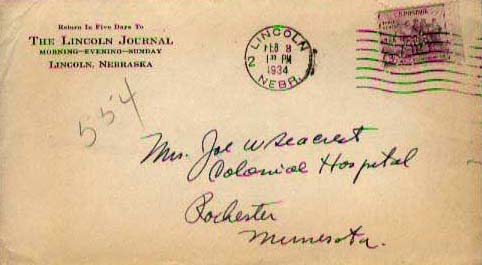 Return in Five Days To
THE LINCOLN JOURNAL
MORNING—EVENING—SUNDAY
LINCOLN, NEBRASKA
LINCOLN
2
FEB 8
PM
1934
NEBR.
554
Mrs. Joe W Seacrest
Colonial Hospital
Rochester
Minnesota.